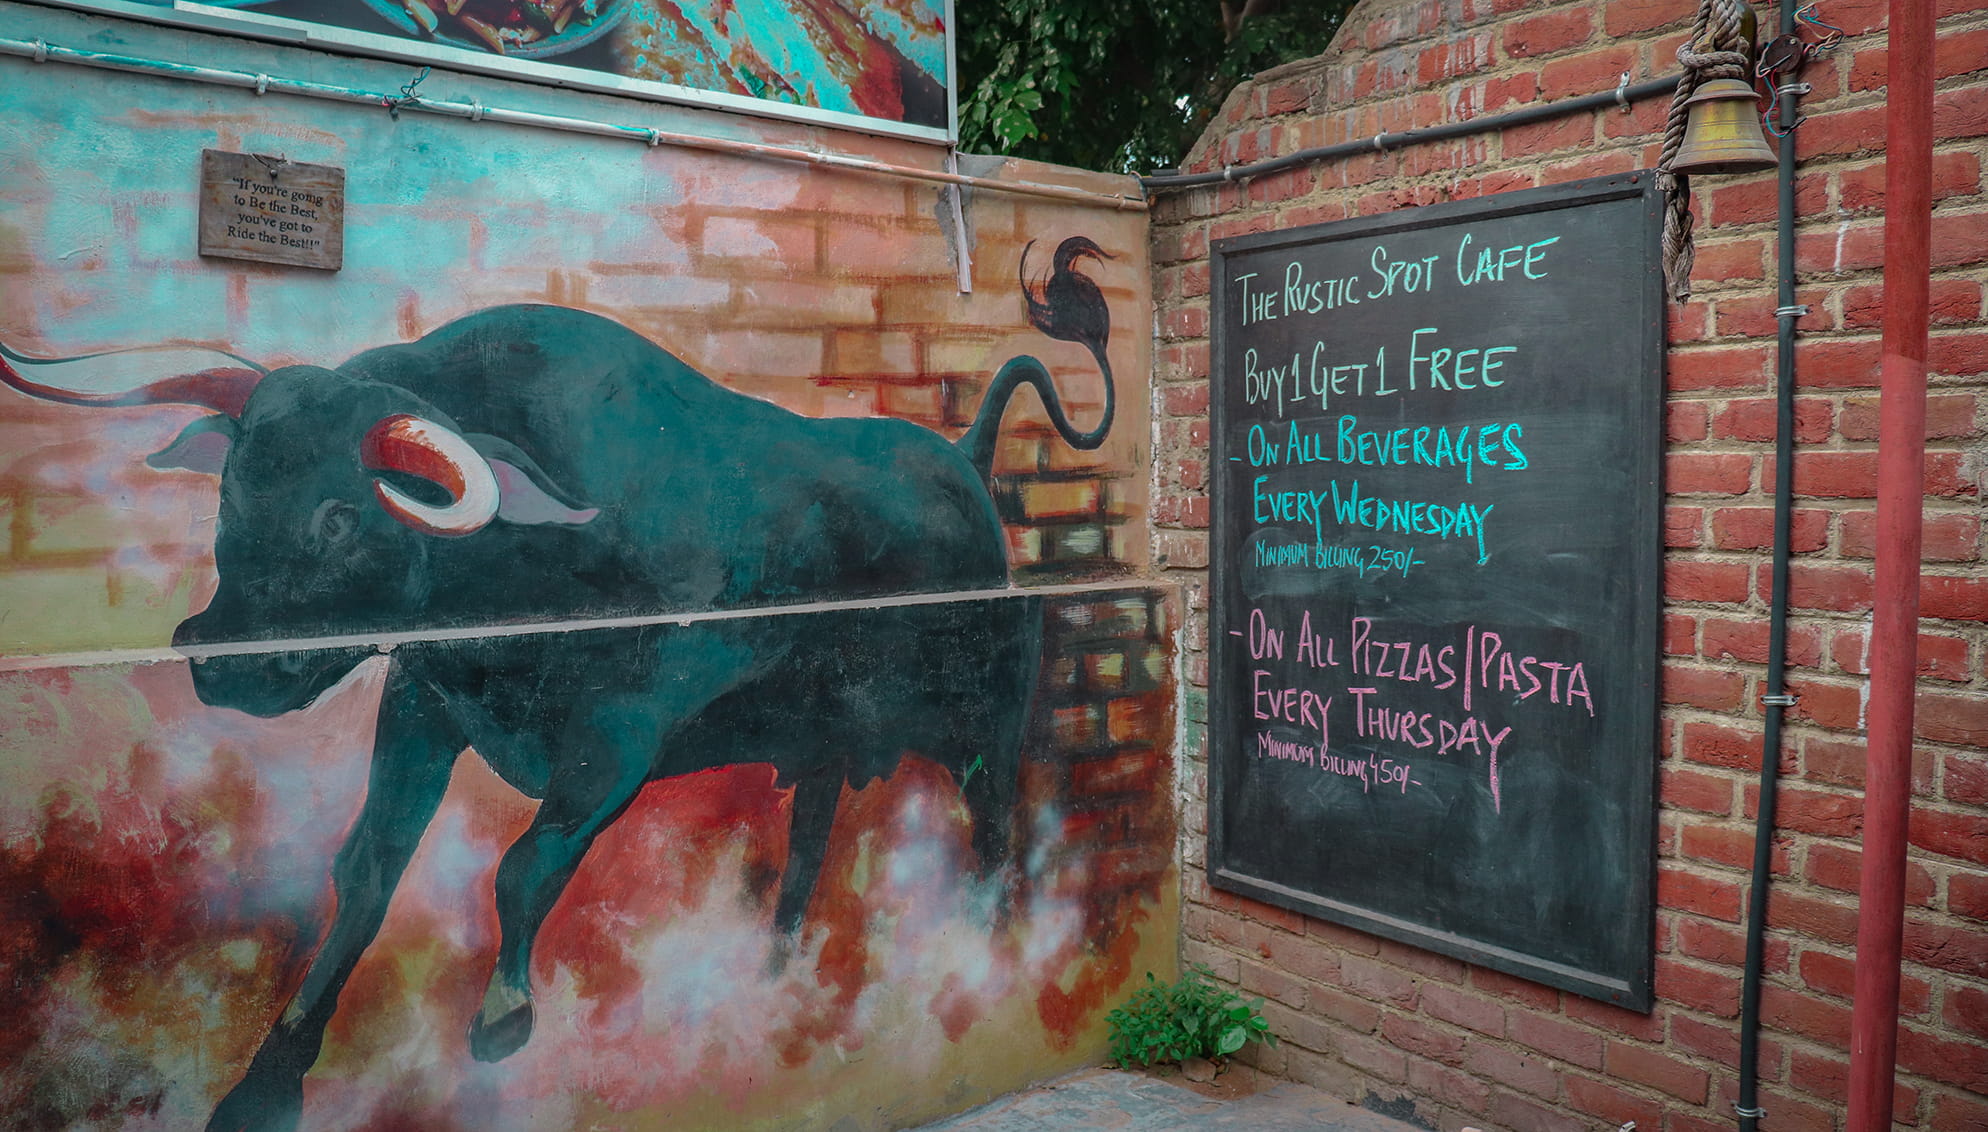 "If you're going
to Be the Best,
you've got to
Ride the Best!!"
THE RUSTIC SPOT CAFE
BUY 1 GET 1 FREE
- ON ALL BEVERAGES
EVERY WEDNESDAY
MINIMUM BILLING 250/-
- ON ALL PIZZAS/PASTA
EVERY THURSDAY
MINIMUM BILLING 450/-